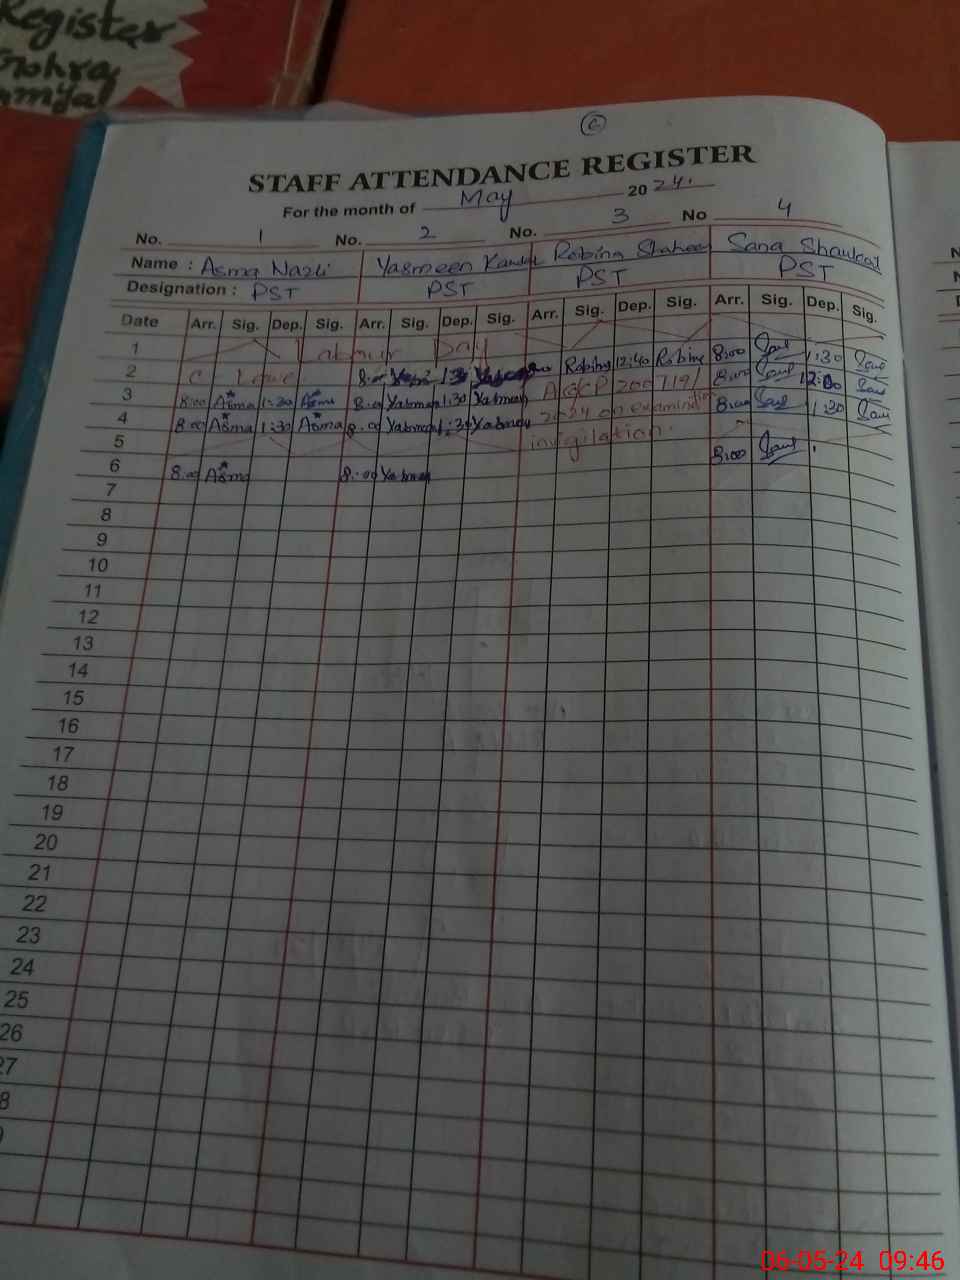 Register
6
STAFF ATTENDANCE REGISTER
For the month of May 2024.
No. 1 No. 2 No. 3 No 4
Name : Asma Nazli Yasmeen Robina Shaheen Sana Shaukat
Designation : PST PST PST PST
Date Arr. Sig. Dep. Sig. Arr. Sig. Dep. Sig. Arr. Sig. Dep. Sig. Arr. Sig. Dep. Sig.
1 Labour Day
2 C Leave 8:00 1:30 8:00 Robina 12:40 Robina 8:00 1:30
3 8:00 Asma 1:30 Asma 8:00 Yasmeen 1:30 Yasmeen 8:00 12:00
4 8:00 Asma 1:30 Asma 8:00 Yasmeen 1:30 Yasmeen 2024 on examination 8:00 1:30
5 invigilation.
6 8:00 Asma 8:00 Yasmeen 8:00
7
8
9
10
11
12
13
14
15
16
17
18
19
20
21
22
23
24
25
26
27
8
06-05-24 09:46